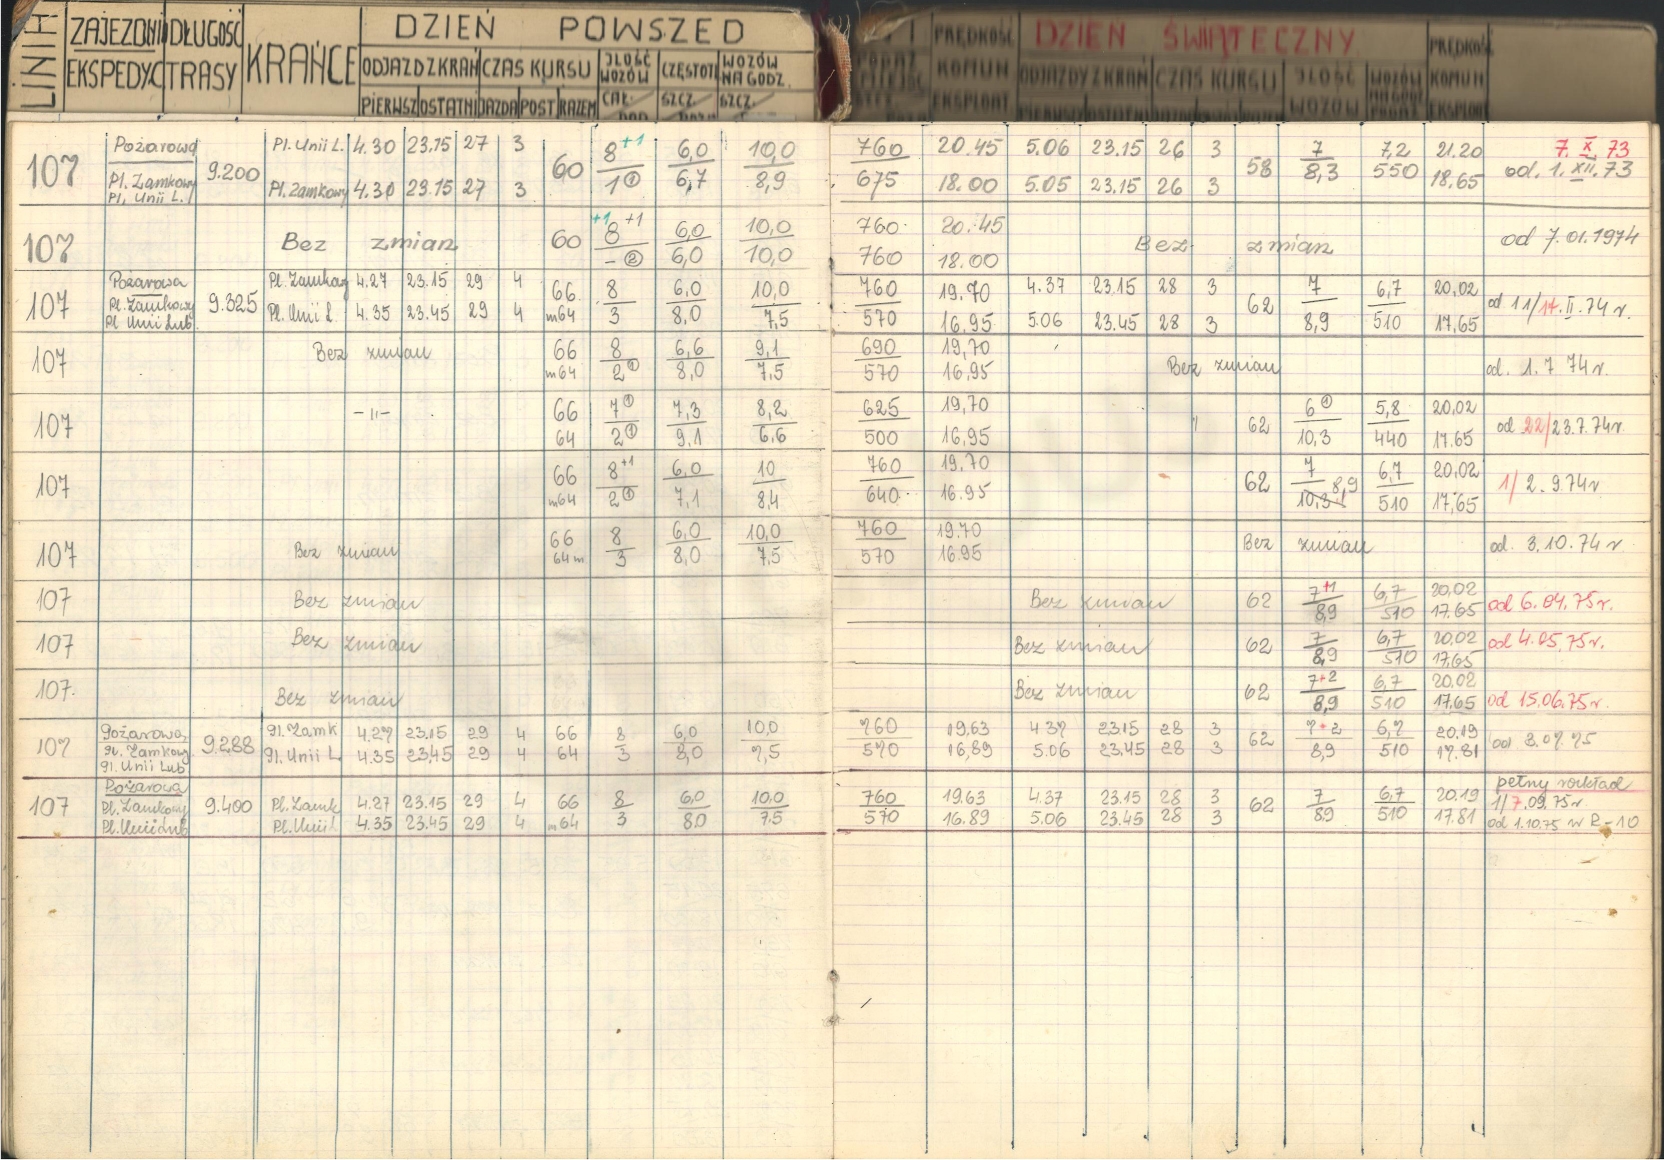 LINIA ZAJEZDNI DŁUGOŚĆ KRAŃCE DZIEŃ POWSZED
EKSPEDYC TRASY ODJAZD Z KRAŃ CZAS KURSU ILOŚĆ WOZÓW CZĘSTOTL WOZÓW NA GODZ.
PIERWSZ OSTATNI JAZDA POST RAZEM CAŁ. SZCZ. SZCZ.
PRĘDKOŚĆ DZIEŃ ŚWIĄTECZNY PRĘDKOŚĆ
KOMUN ODJAZDY Z KRAŃ CZAS KURSU ILOŚĆ WOZÓW KOMUN
EKSPLOAT. WOZÓW EKSPLOAT
Pożarowa Pl. Unii L. 4.30 23.15 27 3 8+1 6,0 10,0 760 20.45 5.06 23.15 26 3 7 7,2 21.20 7. X 73
107 9.200 60 58 od. 1. XII. 73
Pl. Zamkowy Pl. Zamkowy 4.30 23.15 27 3 1① 6,7 8,9 675 18.00 5.05 23.15 26 3 8,3 550 18.65
Pl. Unii L.
+1 8+1 6,0 10,0 760 20.45
107 Bez zmian 60 Bez zmian od 7.01.1974
-② 6,0 10,0 760 18.00
Pożarowa Pl. Zamkowy 4.27 23.15 29 4 66 8 6,0 10,0 760 19.70 4.37 23.15 28 3 7 6,7 20,02
107 Pl. Zamkowy 9.325 62 od 11/17.II.74 r.
Pl. Unii Lub. Pl. Unii L. 4.35 23.45 29 4 m64 3 8,0 7,5 570 16.95 5.06 23.45 28 3 8,9 510 17,65
107 Bez zmian 66 8 6,6 9,1 690 19,70 Bez zmian od. 1.7 74 r.
m64 2① 8,0 7,5 570 16,95
107 -11- 66 7① 7,3 8,2 625 19,70 62 6① 5,8 20,02 od 22/23.7.74r.
64 2① 9,1 6,6 500 16,95 10,3 440 17.65
107 66 8+1 6,0 10 760 19.70 62 7 6,7 20,02 1/2.9.74r
m64 2① 7,1 8,4 640 16.95 10,3 8,9 510 17,65
107 Bez zmian 66 8 6,0 10,0 760 19.70 Bez zmian od. 3.10.74 r
64m 3 8,0 7,5 570 16.95
107 Bez zmian Bez zmian 62 7+1 6,7 20,02 od 6.04.75r.
8,9 510 17.65
107 Bez zmian Bez zmian 62 7 6,7 20,02 od 4.05.75r.
8,9 510 17,65
107. Bez zmian Bez zmian 62 7+2 6,7 20,02
8,9 510 17,65 od 15.06.75r.
Pożarowa Pl. Zamk 4.27 23.15 29 4 66 8 6,0 10,0 760 19,63 4.37 23.15 28 3 7+2 6,7 20.19
107 Pl. Zamkowy 9.288 62 od 3.07.75
Pl. Unii Lub Pl. Unii L. 4.35 23.45 29 4 64 3 8,0 7,5 570 16,89 5.06 23.45 28 3 8,9 510 17.81
Pożarowa pełny rozkład
107 Pl. Zamkowy 9.400 Pl. Zamk 4.27 23.15 29 4 66 8 6,0 10,0 760 19.63 4.37 23.15 28 3 62 7 6,7 20.19 1/7.09.75r.
Pl. Unii Lub Pl. Unii L 4.35 23.45 29 4 m64 3 8,0 7,5 570 16.89 5.06 23.45 28 3 8,9 510 17.81 od 1.10.75 w R-10